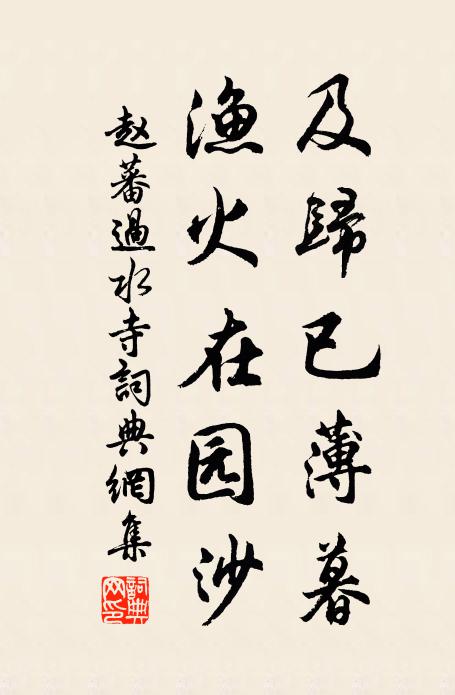 及歸已薄暮
渔火在园沙
赵蕃過水寺詞典網集
詞典网印